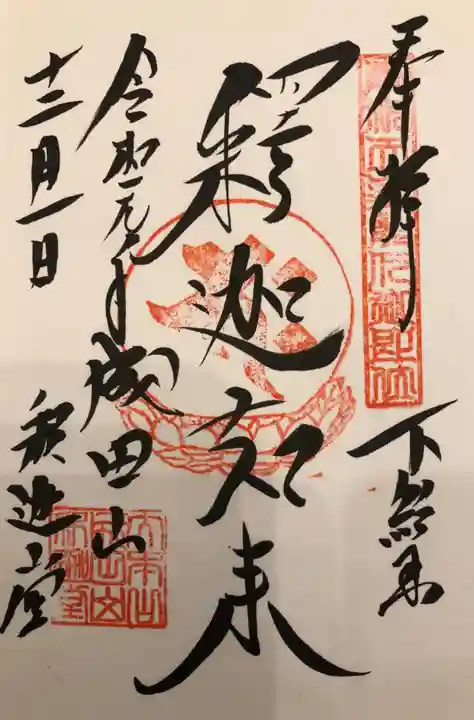 奉拝
下総国
釋迦如来
成田山
釈迦堂
令和元年
十二月一日